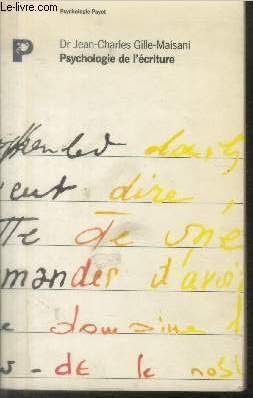 Le-livre.com
Psychologie Payot
P
Dr Jean-Charles Gille-Maisani
Psychologie de l'écriture
dire,
de une
mander d'avoir
e domaine d
s - de le nobl